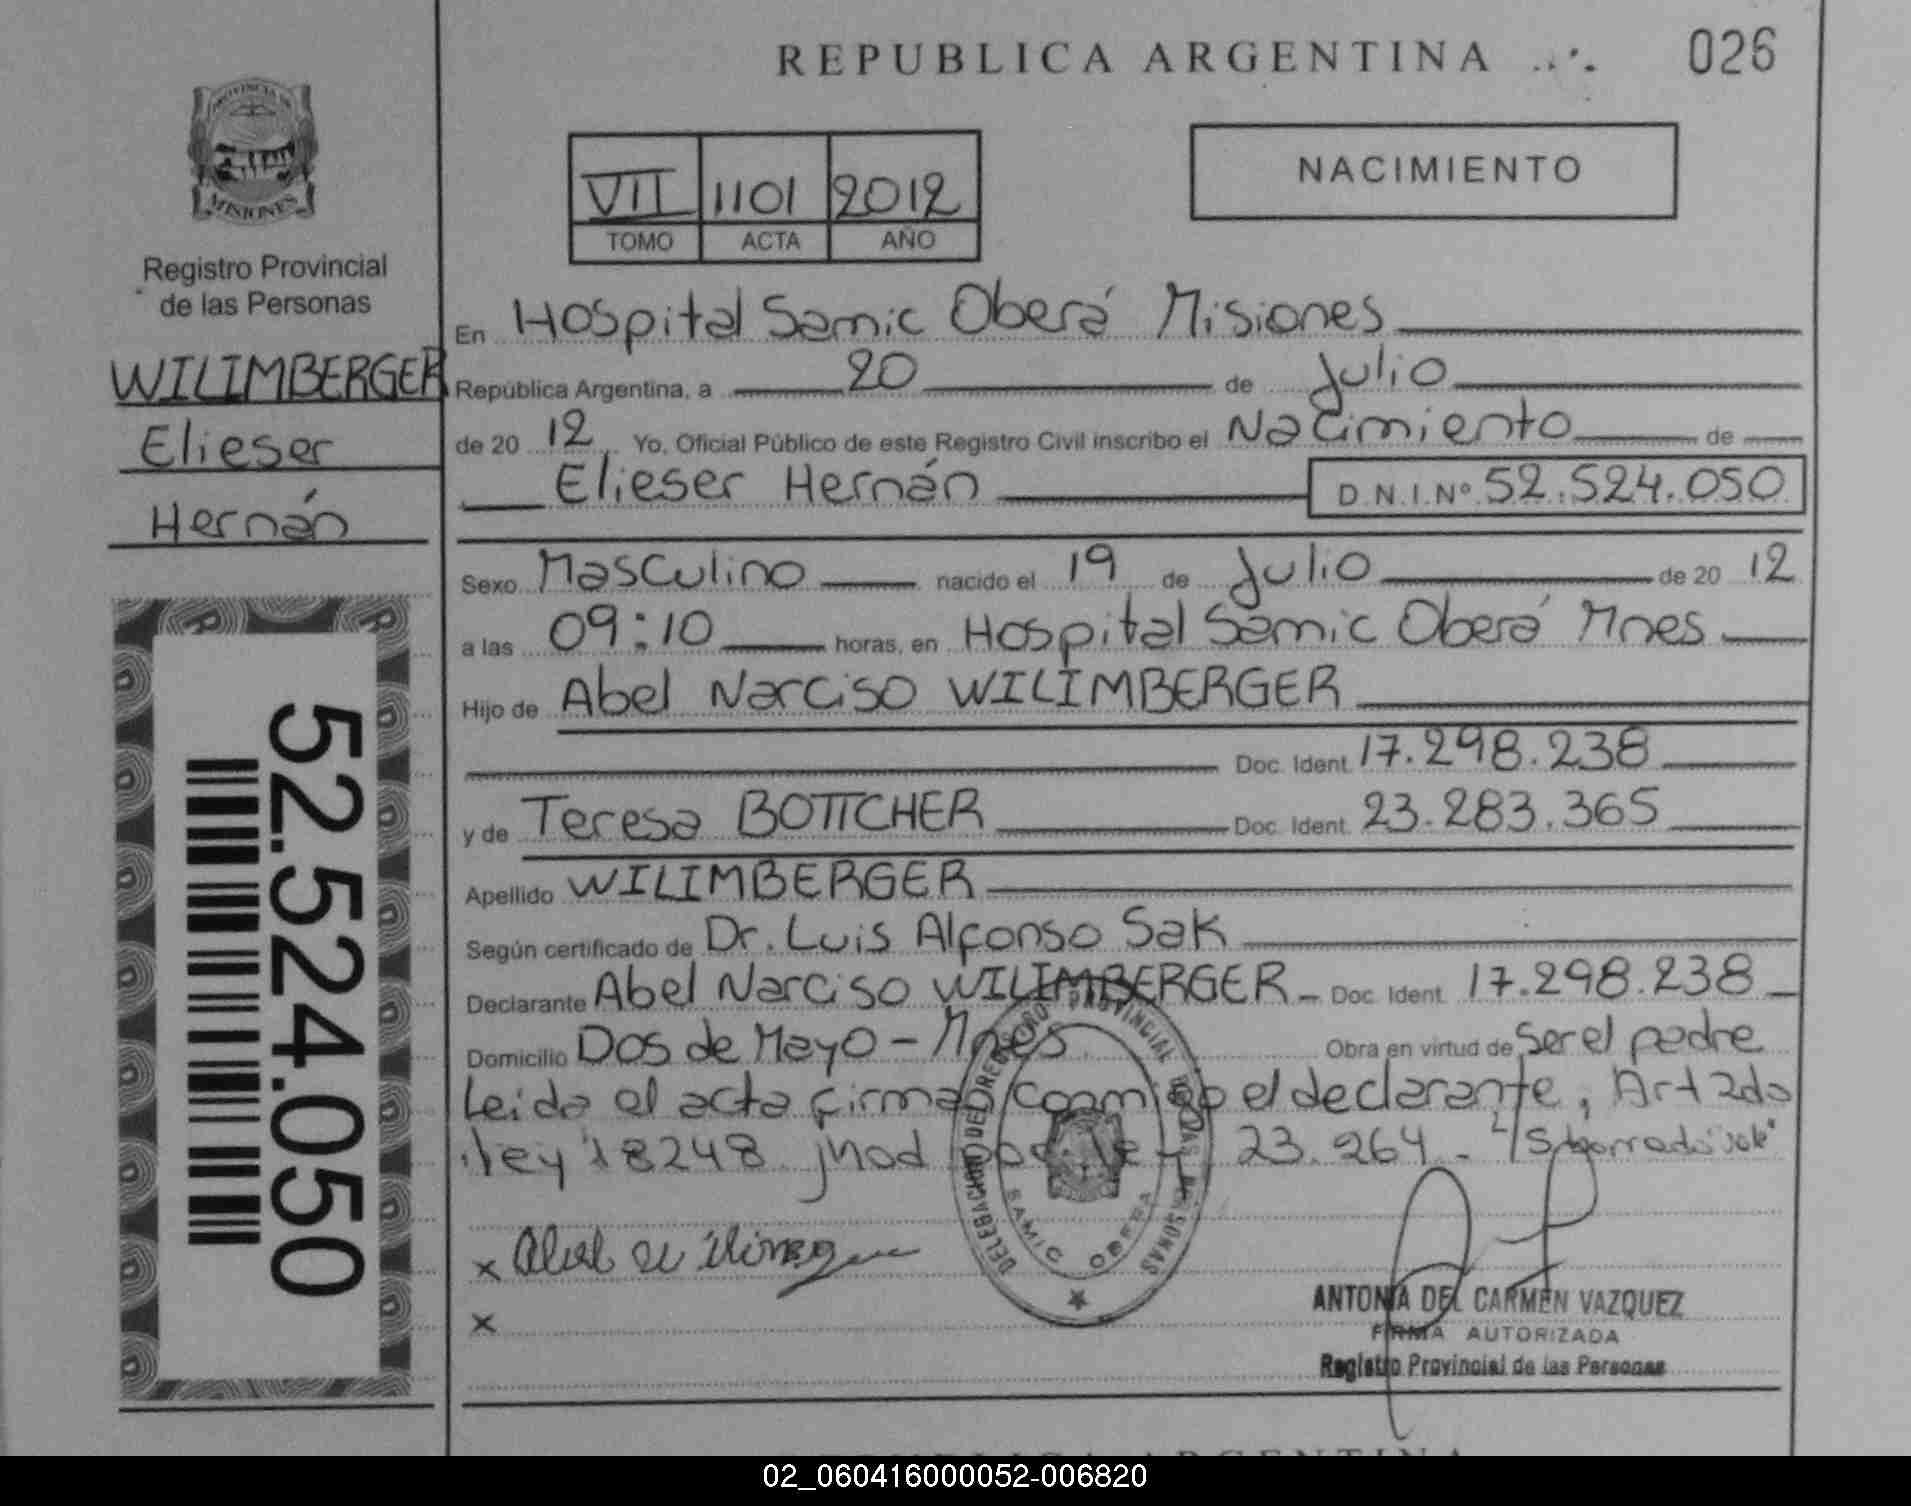 REPUBLICA ARGENTINA
026
PROVINCIA DE
MISIONES
Registro Provincial
de las Personas
WILIMBERGER
Elieser
Hernán
52.524.050
VII 1101 2012
TOMO ACTA AÑO
NACIMIENTO
En Hospital Samic Oberá Misiones
República Argentina, a 20 de Julio
de 20 12 Yo, Oficial Público de este Registro Civil inscribo el Nacimiento de
Elieser Hernán D.N.I.Nº 52.524.050
Sexo Masculino nacido el 19 de Julio de 20 12
a las 09:10 horas, en Hospital Samic Oberá Mnes
Hijo de Abel Narciso WILIMBERGER
Doc. Ident. 17.298.238
y de Teresa BOTTCHER Doc. Ident. 23.283.365
Apellido WILIMBERGER
Según certificado de Dr. Luis Alfonso Sak
Declarante Abel Narciso WILIMBERGER Doc. Ident. 17.298.238
Domicilio Dos de Mayo - Mnes Obra en virtud de Ser el padre
Leida el acta firman conmigo el declarante, Art 2do
ley 18248 mod por ley 23.264 - S/borrado "vale"
DELEGACION DEL REGISTRO PROVINCIAL DE LAS PERSONAS
SAMIC OBERA
x Abel
x
ANTONIA DEL CARMEN VAZQUEZ
FIRMA AUTORIZADA
Registro Provincial de las Personas
REPUBLICA ARGENTINA
02_060416000052-006820